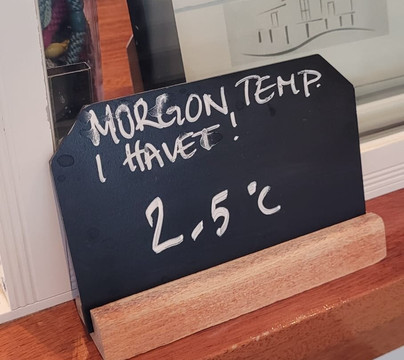 MORGON TEMP.
I HAVET!
2.5°C